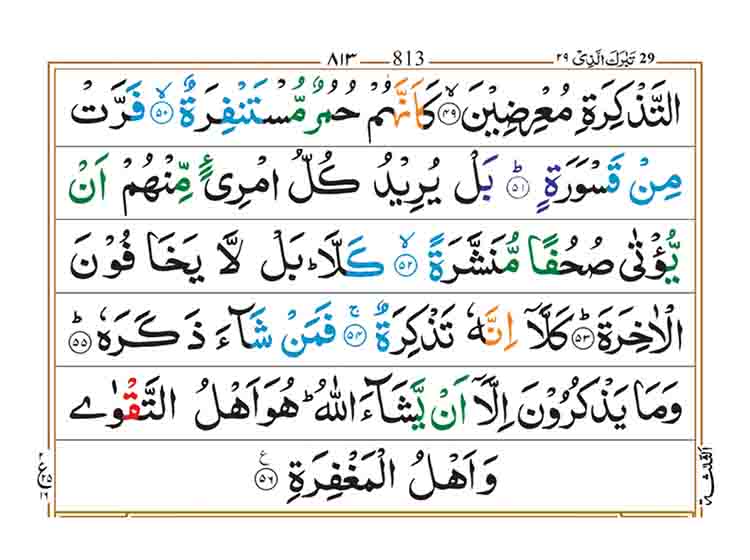 29 تَبٰرَكَ الَّذِیْ ٢٩
813
٨١٣
التَّذْكِرَةِ مُعْرِضِیْنَ ۙ﴿۴۹﴾ كَاَنَّهُمْ حُمُرٌ مُّسْتَنْفِرَةٌ ۙ﴿۵۰﴾ فَرَّتْ
مِنْ قَسْوَرَةٍ ؕ﴿۵۱﴾ بَلْ یُرِیْدُ كُلُّ امْرِئٍ مِّنْهُمْ اَنْ
یُّؤْتٰی صُحُفًا مُّنَشَّرَةً ۙ﴿۵۲﴾ كَلَّا ؕ بَلْ لَّا یَخَافُوْنَ
الْاٰخِرَةَ ؕ﴿۵۳﴾ كَلَّاۤ اِنَّهٗ تَذْكِرَةٌ ۚ﴿۵۴﴾ فَمَنْ شَآءَ ذَكَرَهٗ ؕ﴿۵۵﴾
وَمَا یَذْكُرُوْنَ اِلَّاۤ اَنْ یَّشَآءَ اللّٰهُ ؕ هُوَ اَهْلُ التَّقْوٰی
وَاَهْلُ الْمَغْفِرَةِ ﴿۵۶﴾ ع